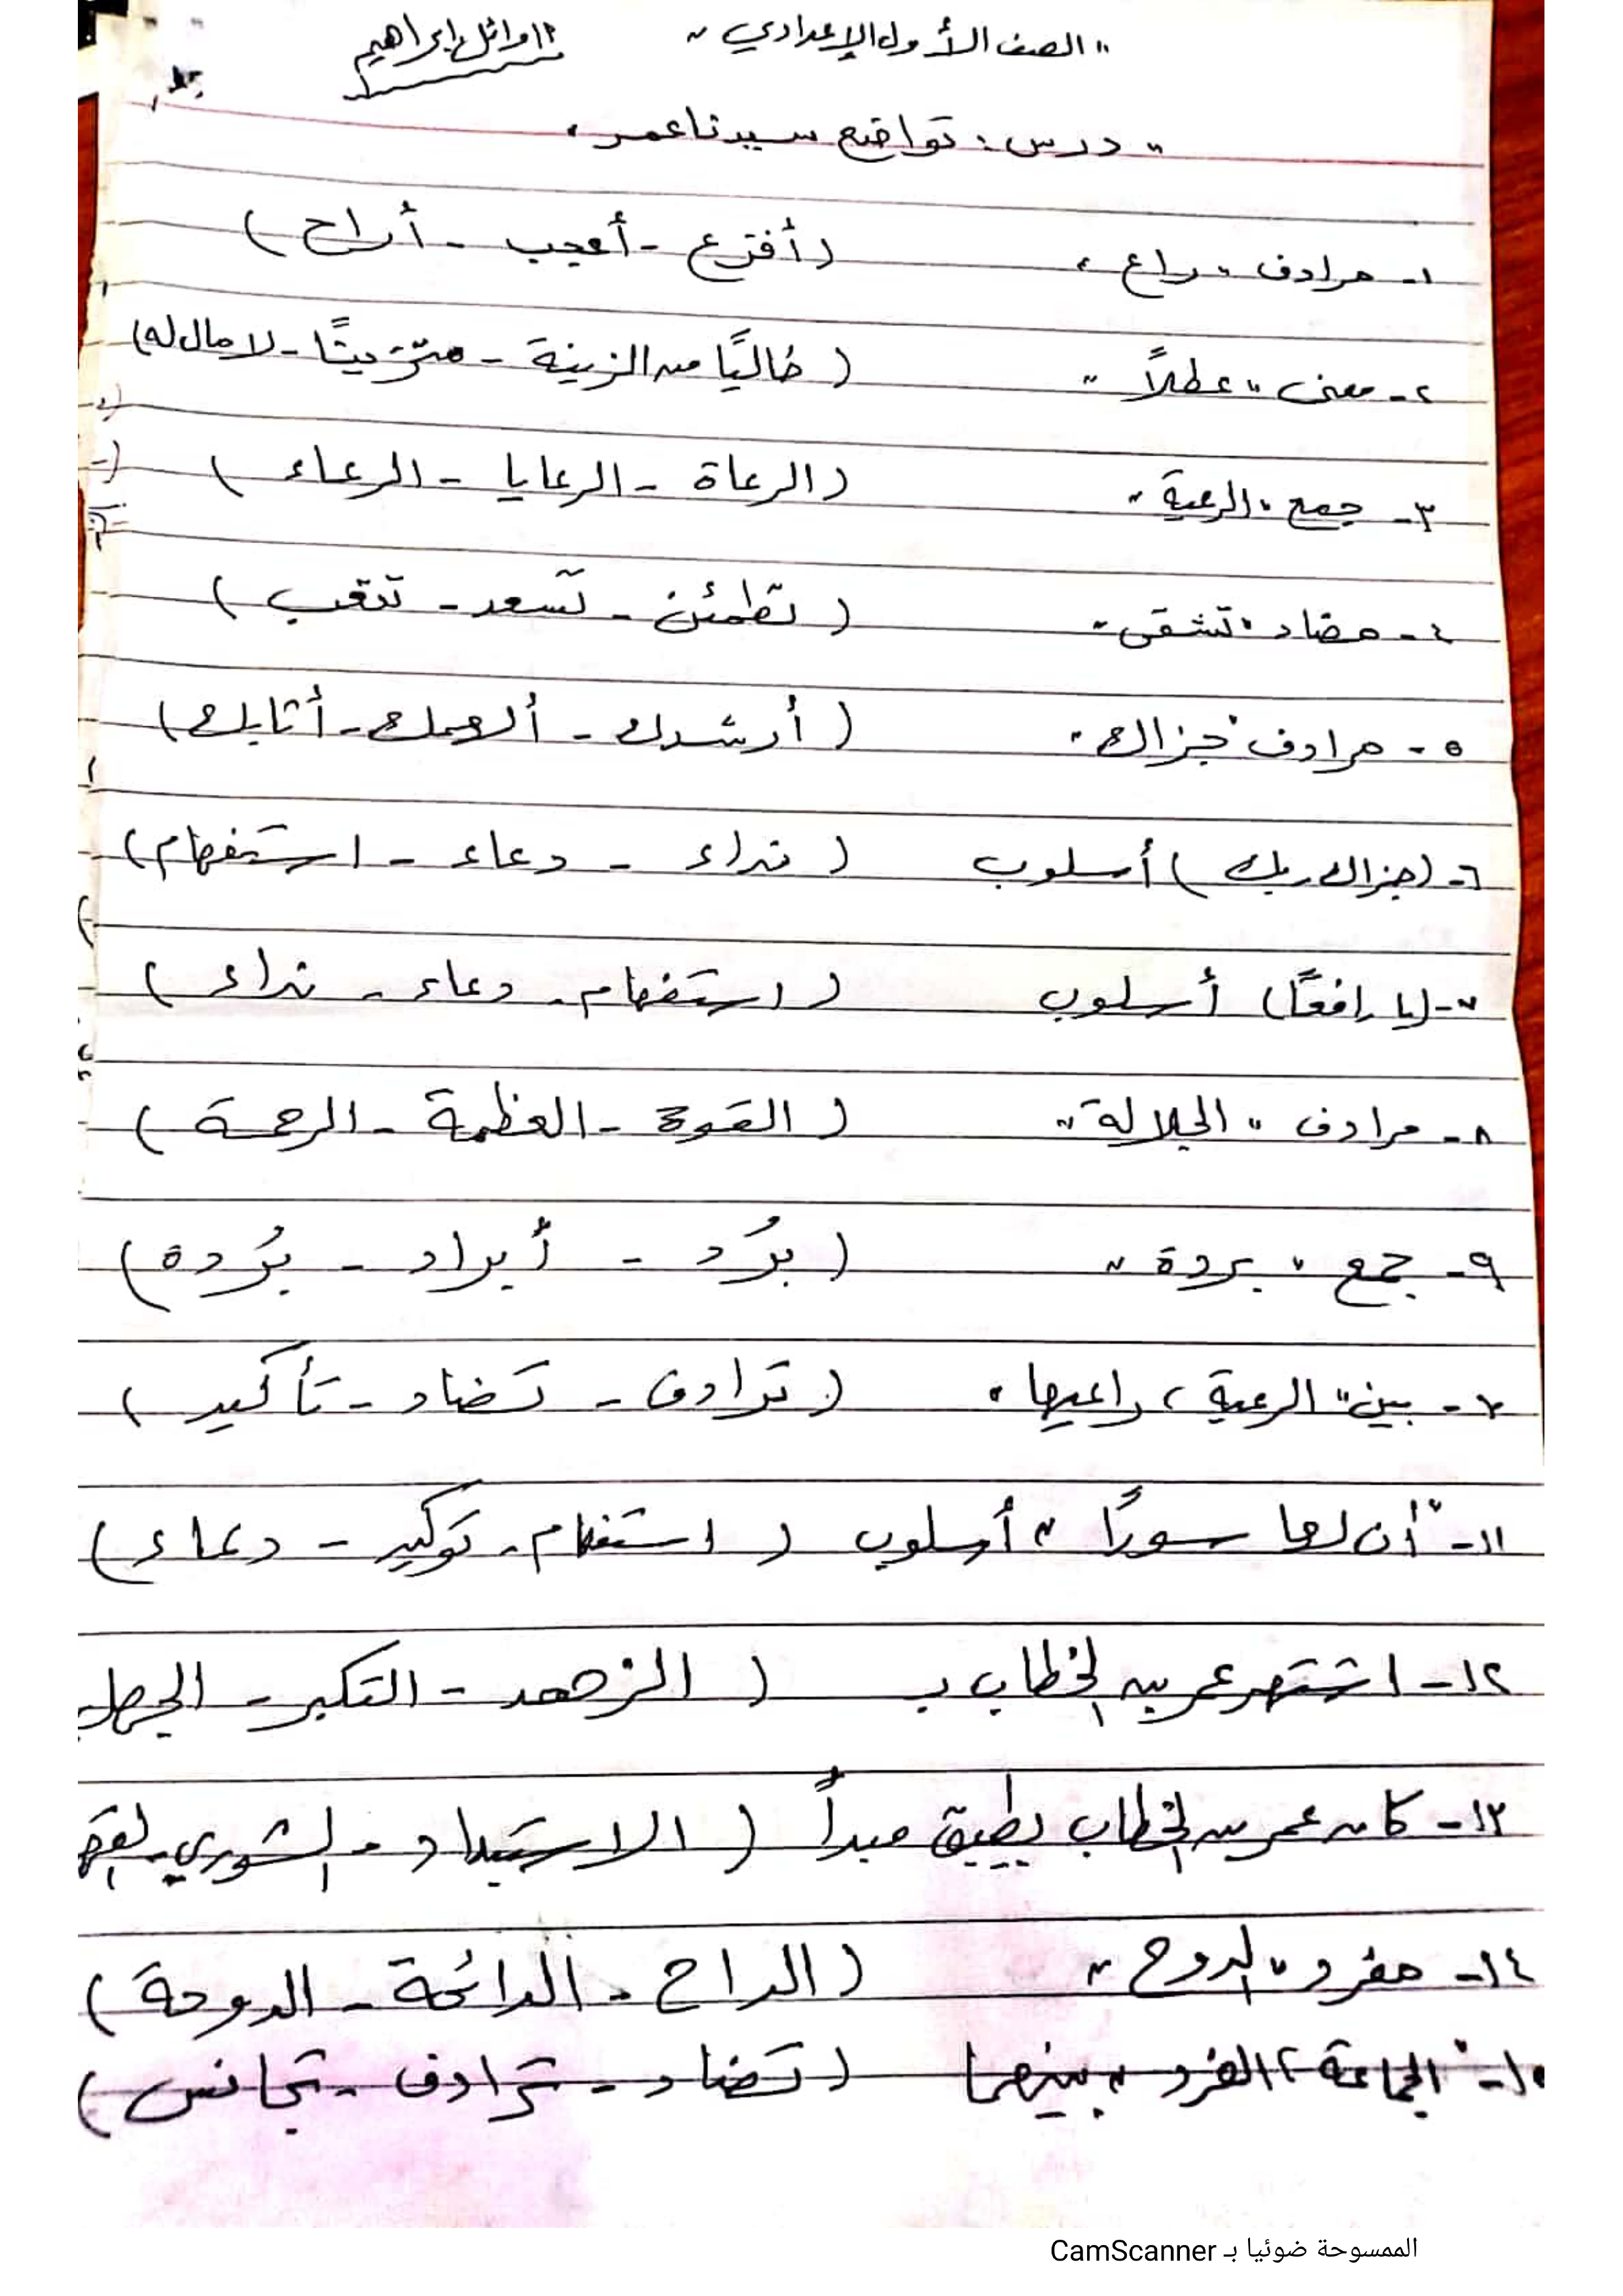 " الصف الأول الإعدادي "
أ/ وائل إبراهيم
" درس : تواضع سيدنا عمر "
١- مرادف " راع " ( أفزع - أعجب - أراح )
٢- معنى " عطلاً " ( خاليًا من الزينة - متزينًا - لا مال له )
٣- جمع " الرعية " ( الرعاة - الرعايا - الرعاء )
٤- مضاد " تشقى " ( تطمئن - تسعد - تتعب )
٥- مرادف " جزاك " ( أرشدك - ألهمك - أثابك )
٦- ( جزاك ربك ) أسلوب ( نداء - دعاء - استفهام )
٧- ( يا رافعًا ) أسلوب ( استفهام - دعاء - نداء )
٨- مرادف " الجلالة " ( القوة - العظمة - الرحمة )
٩- جمع " بردة " ( برُد - أبراد - برُدة )
١٠- بين " الرعية ، راعيها " ( ترادف - تضاد - تأكيد )
١١- " أن لها سورًا " أسلوب ( استفهام - توكيد - دعاء )
١٢- اشتهر عمر بن الخطاب بـ ( الزهد - التكبر - الجهل
١٣- كان عمر بن الخطاب يطبق مبدأ ( الاستبداد - الشورى -
١٤- مفرد " الدوح " ( الداح - الدائحة - الدوحة )
١٥- " الجماعة ، الفرد " بينهما ( تضاد - ترادف - تجانس )
الممسوحة ضوئيا بـ CamScanner